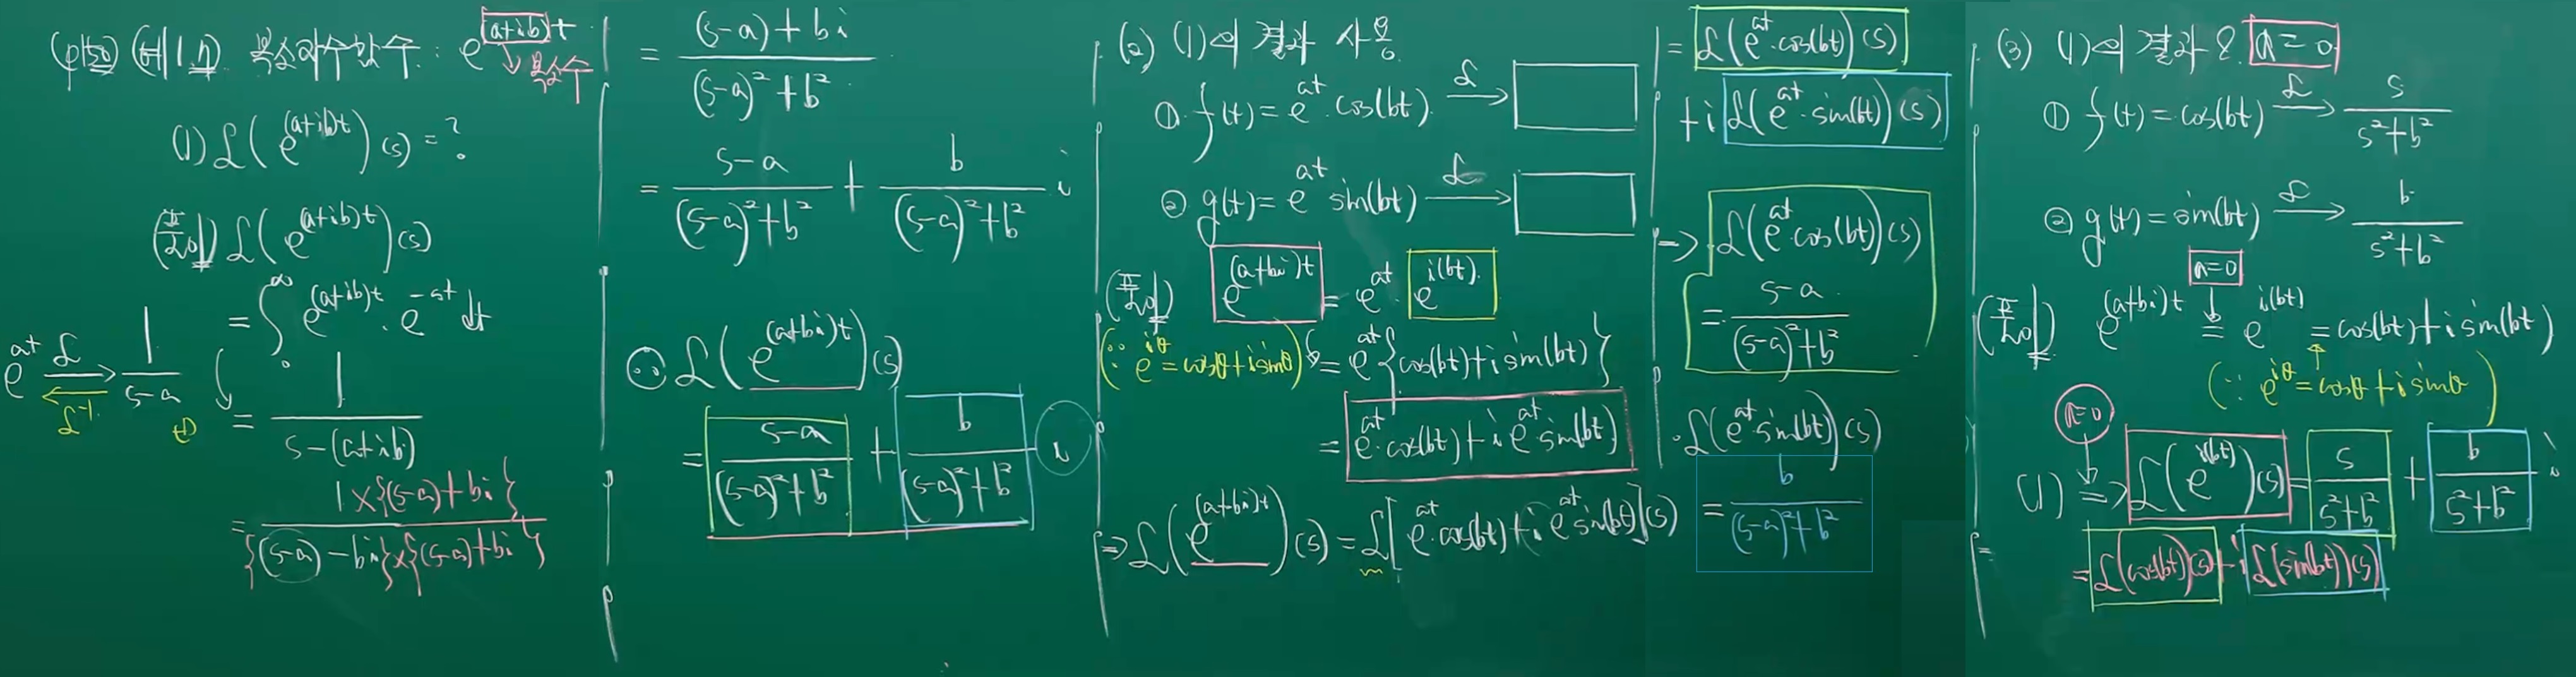 (p150) (예1.7) 복소지수함수 : e^{(a+ib)t}
↓ 복소수
(1) ℒ(e^{(a+ib)t})(s) = ?
(풀이) ℒ(e^{(a+ib)t})(s)
= ∫_0^∞ e^{(a+ib)t} · e^{-st} dt
e^{at} ℒ→ 1/(s-a)
←ℒ^{-1}
= 1/(s-(a+ib))
= 1×{(s-a)+bi} / {(s-a)-bi}×{(s-a)+bi}
= ((s-a)+bi)/((s-a)²+b²)
= (s-a)/((s-a)²+b²) + b/((s-a)²+b²) i
∴ ℒ(e^{(a+bi)t})(s)
= (s-a)/((s-a)²+b²) + b/((s-a)²+b²) i
(2) (1)의 결과 사용
① f(t) = e^{at}·cos(bt) ℒ→
② g(t) = e^{at} sin(bt) ℒ→
(풀이) e^{(a+bi)t} = e^{at} · e^{i(bt)}
(∵ e^{iθ} = cosθ+isinθ) = e^{at}{cos(bt)+i sin(bt)}
= e^{at}·cos(bt)+i e^{at}·sin(bt)
⇒ ℒ(e^{(a+bi)t})(s) = ℒ[e^{at}·cos(bt)+i e^{at}sin(bt)](s)
= ℒ(e^{at}·cos(bt))(s)
+i ℒ(e^{at}·sin(bt))(s)
⇒ ℒ(e^{at}·cos(bt))(s)
= (s-a)/((s-a)²+b²)
· ℒ(e^{at}·sin(bt))(s)
= b/((s-a)²+b²)
(3) (1)의 결과 & a=0
① f(t) = cos(bt) ℒ→ s/(s²+b²)
② g(t) = sin(bt) ℒ→ b/(s²+b²)
a=0
(풀이) e^{(a+bi)t} = e^{i(bt)} = cos(bt)+i sin(bt)
(∵ e^{iθ} = cosθ+i sinθ)
a=0
(1) ⇒ ℒ(e^{i(bt)})(s) = s/(s²+b²) + b/(s²+b²) i
= ℒ(cos(bt))(s)+i ℒ(sin(bt))(s)